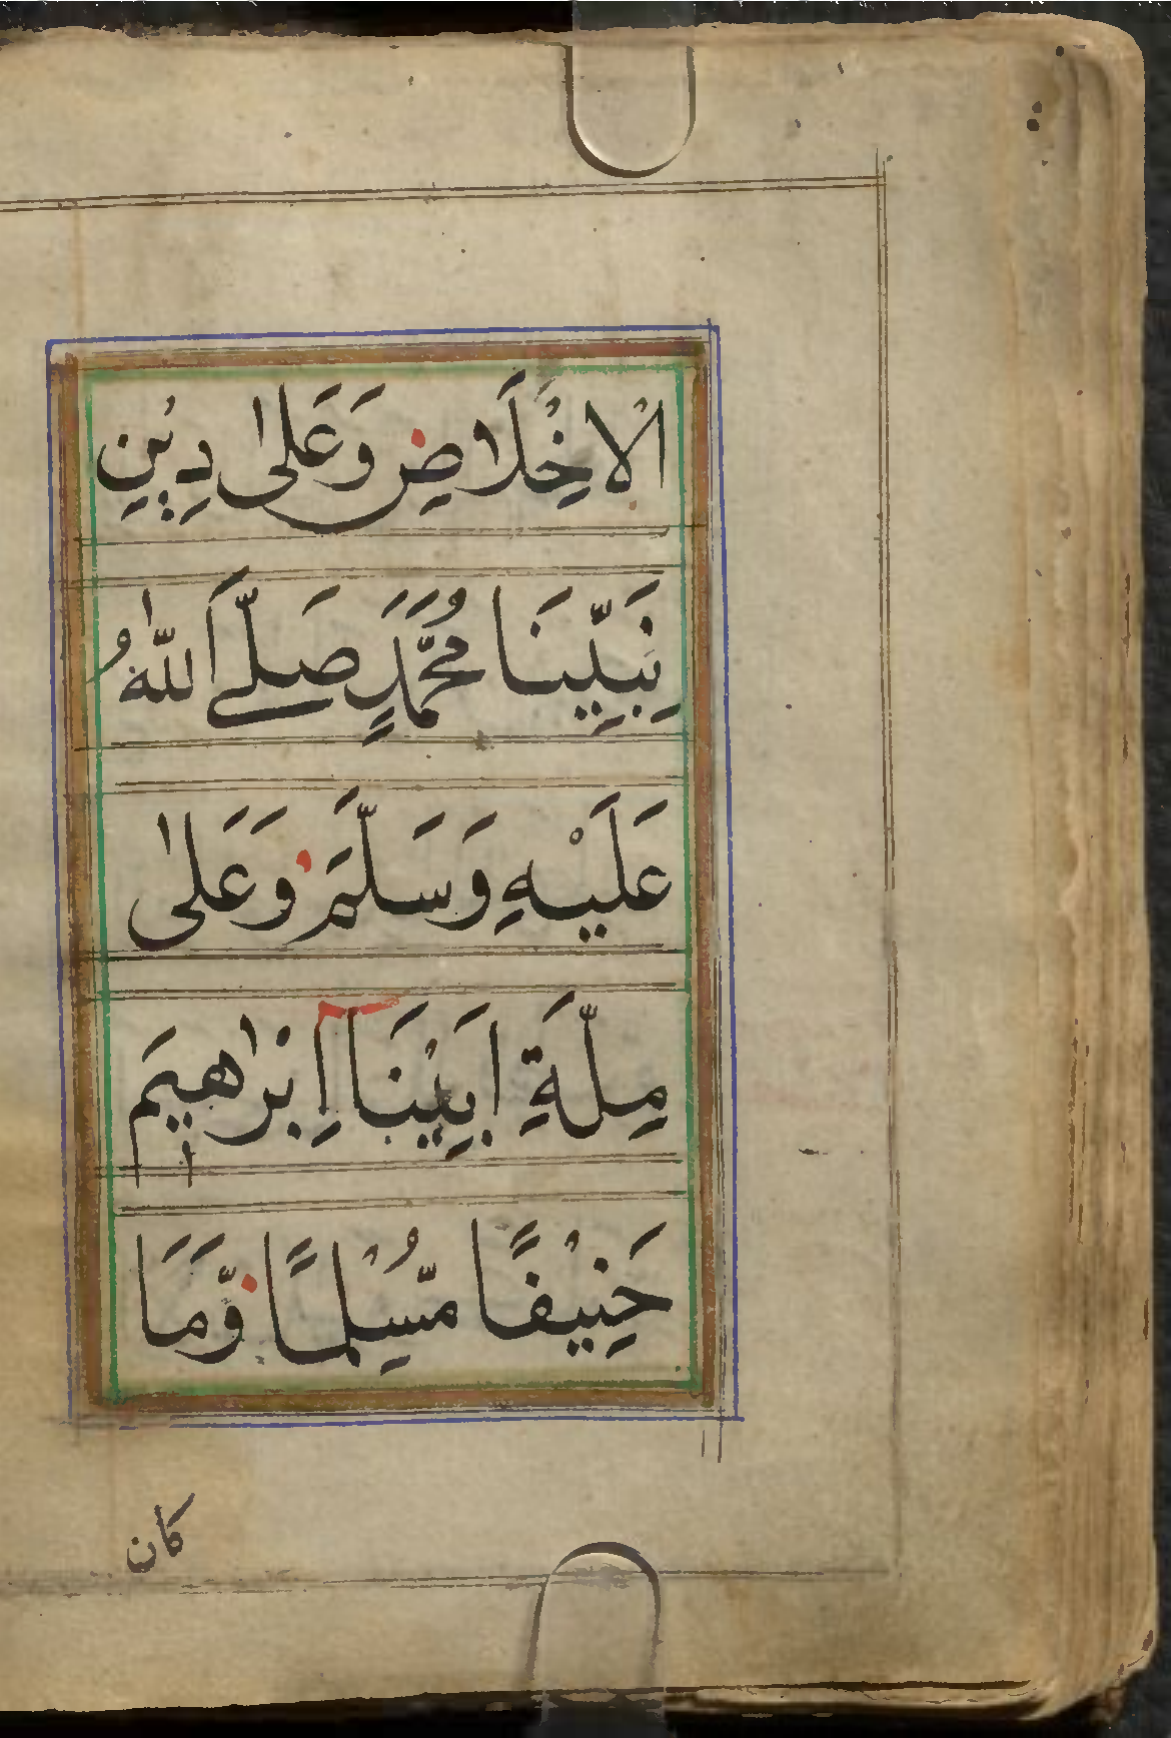 الْاِخْلَاصِ وَعَلٰى دِيْنِ
نَبِيِّنَا مُحَمَّدٍ صَلَّے اللّٰهُ
عَلَيْهِ وَسَلَّمَ وَعَلٰى
مِلَّةِ اَبِيْنَا اِبْرٰاهِيمَ
حَنِيْفًا مُّسْلِمًا وَّمَا
كان